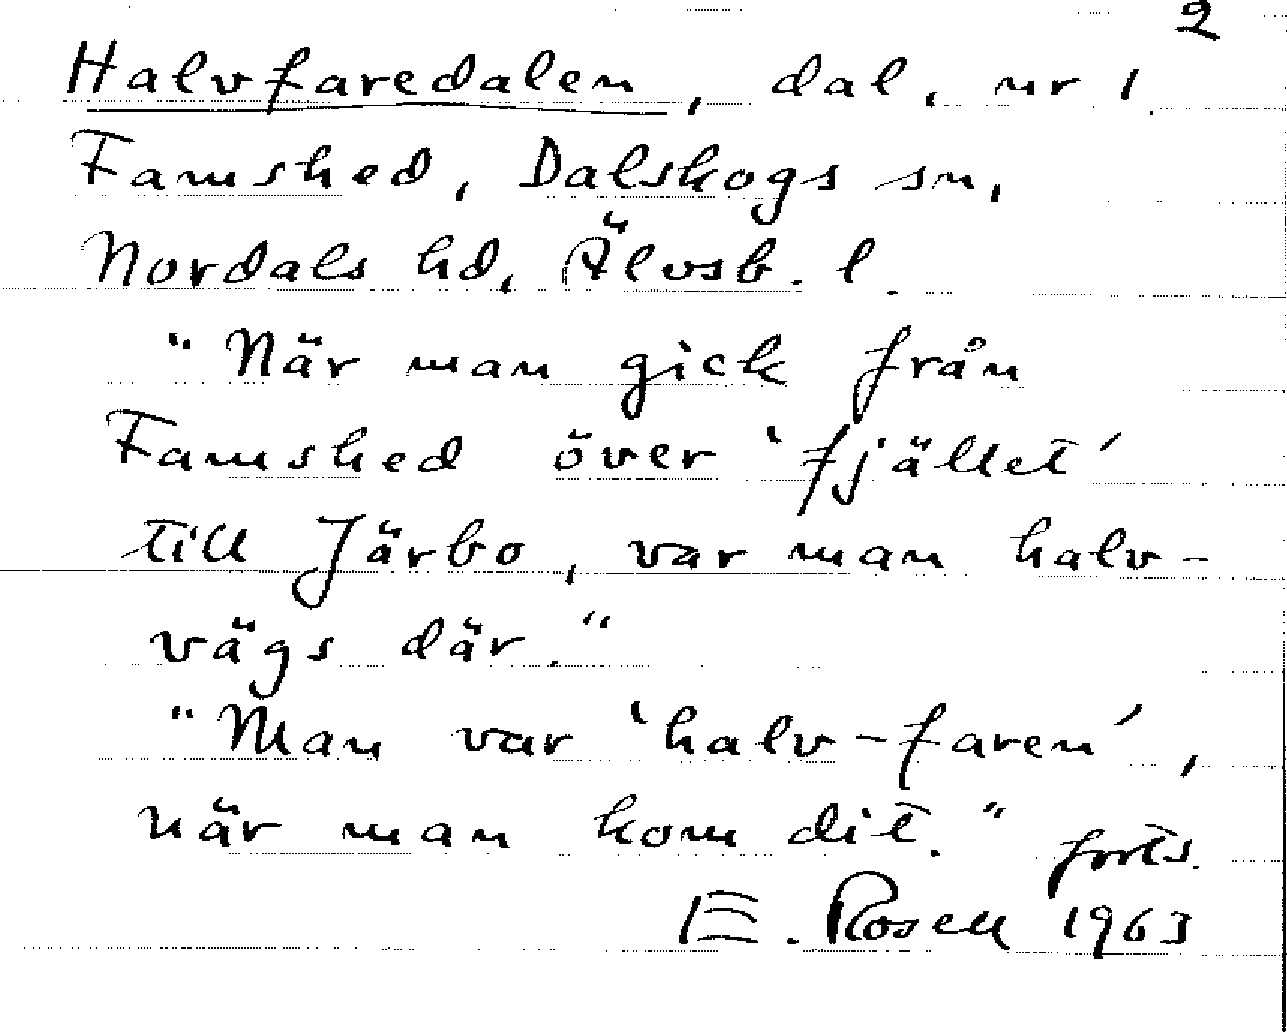 2
Halvfaredalen, dal, nr 1
Famshed, Dalskogs sn,
Nordals hd, Älvsb. l.
"När man gick från
Famshed över 'fjället'
till Järbo, var man halv-
vägs där."
"Man var 'halv-faren',
när man kom dit." forts.
E. Rosell 1963